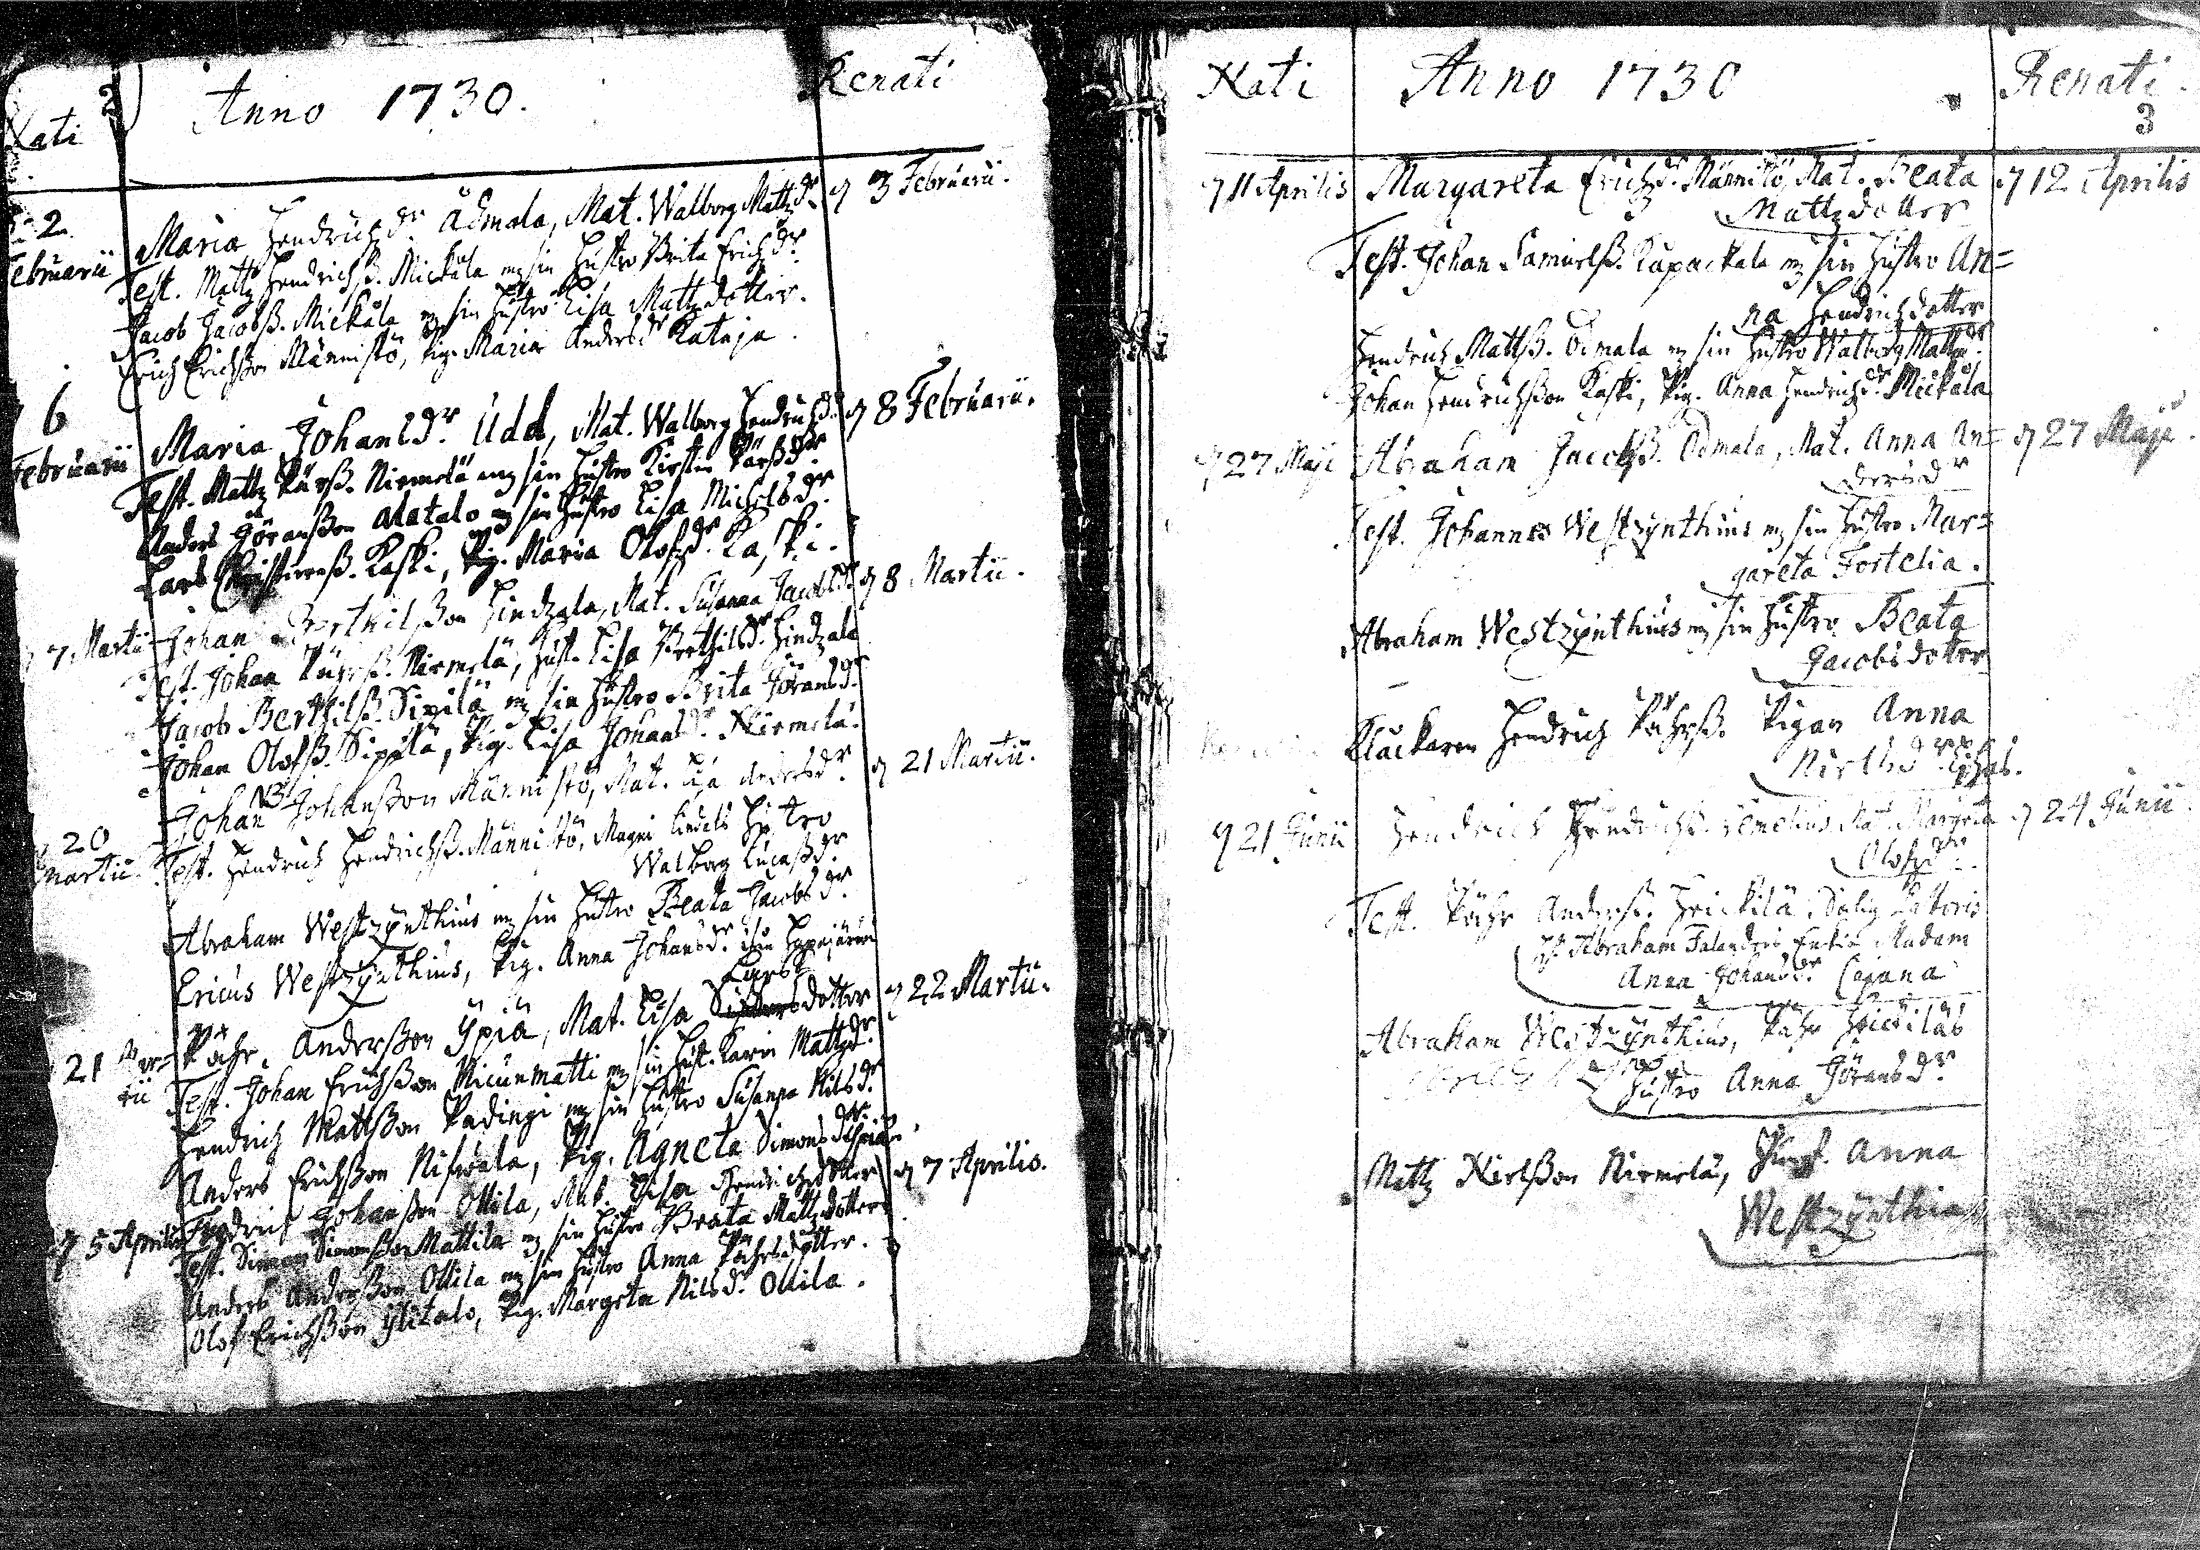 Nati
2
Anno 1730.
Renati
2 Februarii
Maria Hendrichsdr Ådmala, Mat. Walborg Mattzdr
d 3 Februarii.
Test. Mattz Hendrichß. Mickåla mz sin Hustro Brita Erichzdr
Jacob Jacobß. Mickåla mz sin Hustro Lisa Mattzdotter.
Erich Erichßon Männistö, Pig. Maria Andersdr Kataja.
6 Februarii
Maria Johansdr. Udd, Mat. Walborg Hendrichsdr.
d 8 Februarii.
Test. Mattz Pärß. Niemelä mz sin Hustro Kirstin Pärßdr
Anders Göranßon Alatalo mz sin Hustro Lisa Michelsdr.
Lars Christierß. Kaski, Pig. Maria Olofzdr. Kaski.
7 Martii
Johan Berthilßon Hindzala, Mat. Susanna Jacobsdr
d 8 Martii.
Test. Johan Pärß. Niemelä, Hust. Lisa Berthilsdr. Hindzala
Jacob Berthilß. Sipilä mz sin Hustro Brita Göransdr.
Johan Olofß. Sipilä, Pig. Lisa Johansdr. Niemelä.
20 Martii.
NB
Johan Johanßon Männistö, Mat. Lisa Andersdr.
d 21 Martii.
Test. Hendrich Hendrichß. Männistö, Magni Lindels Hustro
Walborg Lucaßdr
Abraham Westzynthius mz sin Hustro Beata Jacobsdr.
Ericus Westzynthius, Pig. Anna Johansdr. Iso
21 Mar=
tii
Lars
Påhr. Anderßon Ypiä, Mat. Lisa dotter
d 22 Martii.
Test. Johan Erichßon Nicunmatti mz sin Hust. Karin Mattzdr.
Hendrich Mattßon Padingi mz sin Hustro Susanna Nilsdr
Anders Erichßon Nifwala, Pig. Agneta Simonsdr. Ypiä.
d 5 Aprilis
Hendrich Johanßon Ollila, Mat. Lisa Hendrichsdotter
d 7 Aprilis.
Test. Simon Simonßon Mattila mz sin Hustro Beata Mattzdotter
Anders Anderßon Ollila mz sin Hustro Anna Påhrsdotter.
Olof Erichßon Ylitalo, Pig. Margeta Nilsdr. Ollila.
Nati
Anno 1730
Renati.
3
d 11 Aprilis
Margareta Erichzdr. Männistö, Mat. Beata
d 12 Aprilis
Mattzdotter
Test. Johan Samuelß. Kapackala mz sin Hustro An=
na Hendrichdotter
Hendrich Mattß. Ådmala mz sin Hustro Walborg Mattzdr.
Johan Hendrichßon Kaski, Pig. Anna Hendrichsdr. Mickåla
d 27 Maji
Abraham Jacobß. Ådmala, Mat. Anna An=
d 27 Maji.
dersdr
Test. Johannes Westzynthius mz sin Hustro Mar=
gareta Fortelia.
Abraham Westzynthius mz sin Hustro Beata
Jacobsdotter
Klåckaren Hendrich Påhrß. Pigan Anna
d 21 Junii
Hendrich Hendrichß. Mat. Margeta
d 24 Junii
Olofzdr.
Test. Påhr Anderß. Heickilä, Salig Pastoris
Hr Abraham Falanders Enkia Madam
Anna Johansdr. Cajana
Abraham Westzynthius, Påhr Heickiläs
Hustro Anna Göransdr.
Mattz Nielßon Niemelä, Jungf. Anna
Westzynthia